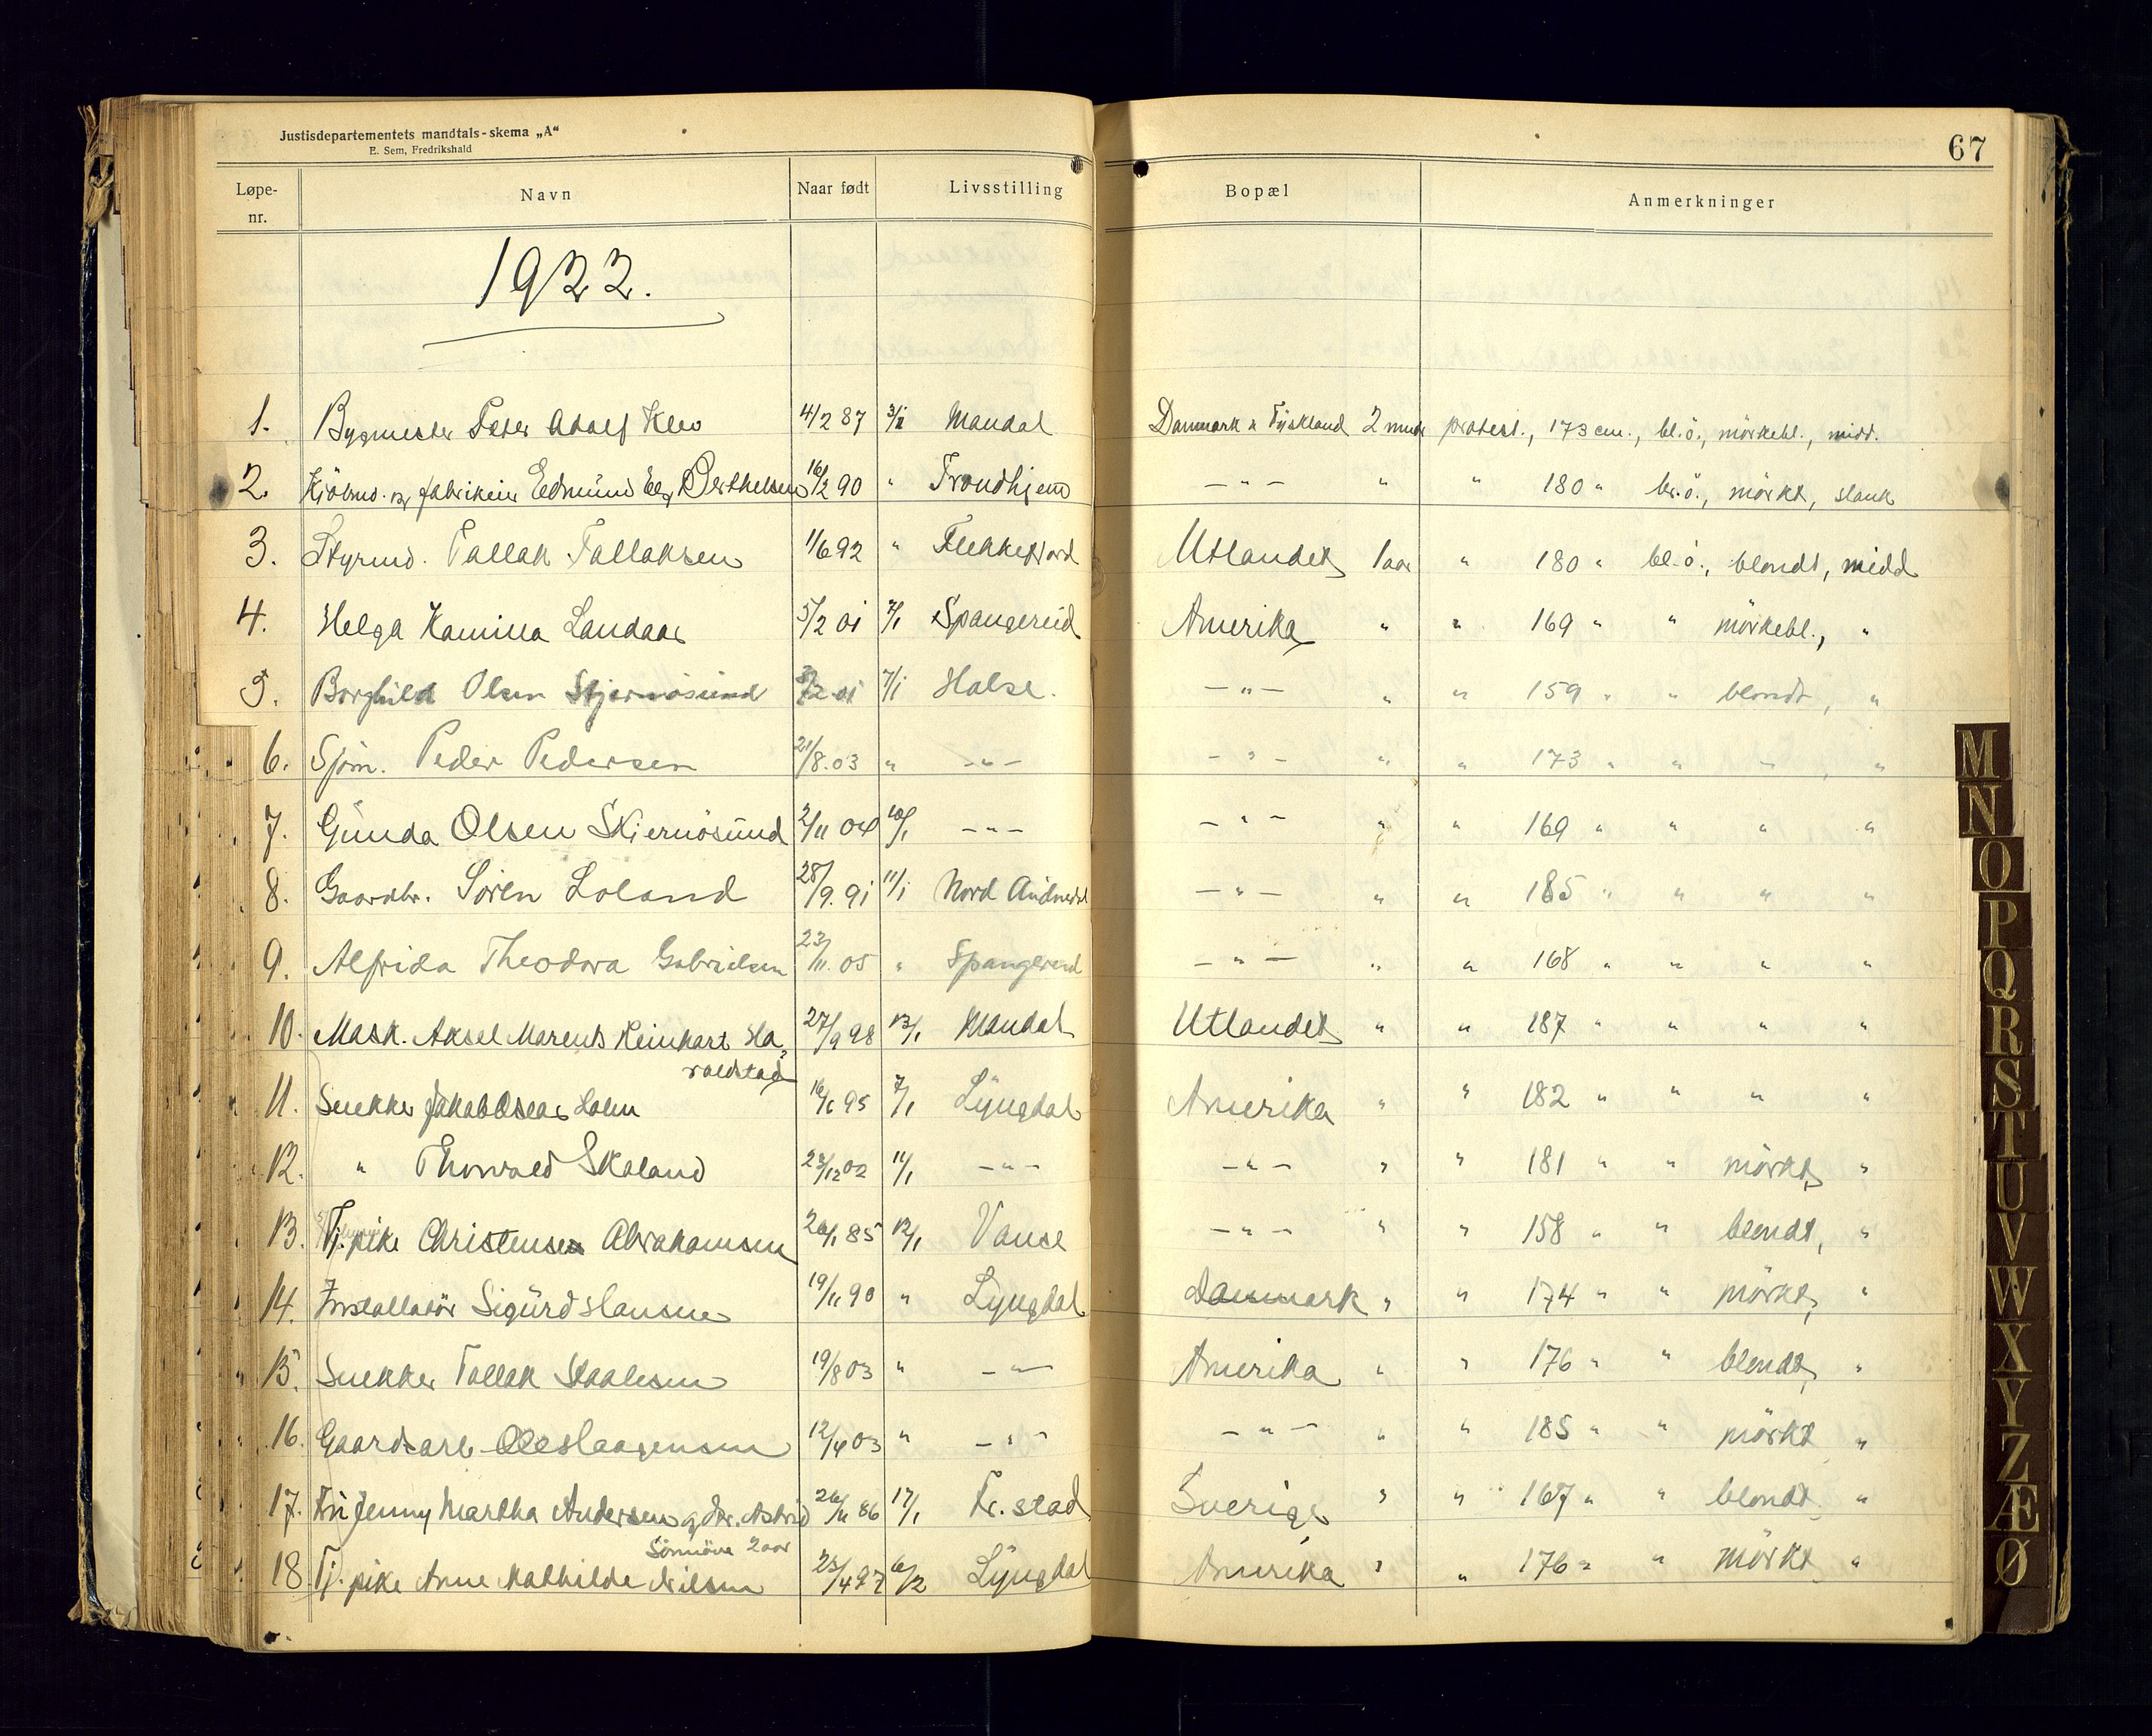 Justisdepartementets mandtals-skema „A“
E. Sem, Fredrikshald
67
Løpe-nr. Navn Naar født Livsstilling Bopæl Anmerkninger
1922.
1. Bygmester Peter Adolf Klev 4/2 87 3/1 Mandal Danmark & Tyskland 2 mndr protest., 173 cm., bl.ö., mörkebl., midd.
2. Kjöbmd. og fabrikeier Edmund Berthelsen 16/2 90 " Trondhjem — " — " " 180 " br.ö., mörkt, slank
3. Styrmd. Tallak Tallaksen 1/6 92 " Flekkefjord Utlandet 1 aar " 180 " bl.ö., blondt, midd
4. Helga Kamilla Landaas 5/2 01 7/1 Spangereid Amerika " " 169 " " mörkebl., "
5. Borghild Olsen Skjernösund 7/1 Halse. — " — " " 159 " " blondt, "
6. Sjøm. Peder Pedersen 21/8.03 " — " — — " — " " 173 " " — , "
7. Gunda Olsen Skjernösund 2/11 04 10/1 — " — — " — " " 169 " " " "
8. Gaardbr. Sören Loland 28/9.91 11/1 Nord Audnedal — " — " " 185 " " " "
9. Alfrida Theodora Gabrielsen 23/11.05 " Spangereid — " — " " 168 " " " "
10. Mask. Aksel Marents Reinhart Ha-
raldstad 27/9 98 13/1 Mandal Utlandet " " 187 " " " "
11. Snekker Jakob Oscar Holm 16/6 95 7/1 Lyngdal Amerika " " 182 " " " "
12. " Thorvald Skaland 23/12 02 11/1 — " — — " — " " 181 " " mörkt, "
13. Tj.pike Christense Abrahamsen 26/1 85 12/1 Vanse — " — " " 158 " " blondt, "
14. Installatör Sigurd Hansen 19/11 90 " Lyngdal Danmark " " 174 " " mörkt, "
15. Snekker Tallak Staalesen 19/8 03 " — " — Amerika " " 176 " " blondt, "
16. Gaardsarb Ole Haagensen 12/4 03 " — " — — " — " " 185 " " mörkt "
17. Fru Jenny Martha Andersen og dtr. Astrid
Sönnöve 2 aar 26/11 86 17/1 Fr.stad Sverige " " 167 " " blondt "
18 Tj. pike Anne Mathilde Nilsen 25/4 97 6/2 Lyngdal Amerika " " 176 " " mörkt "
M
N
O
P
Q
R
S
T
U
V
W
X
Y
Z
Æ
Ø